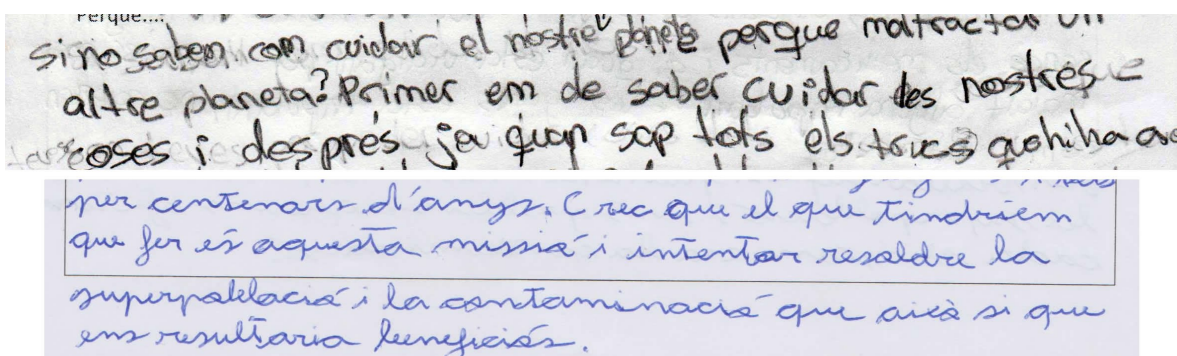 Perquè....
si no saben com cuidar el nostre planeta perque maltractar un
altre planeta? Primer em de saber cuidar les nostres
coses i després ja quan sap tots els trucs quehiha
per centenars d'anys. Crec que el que tindriem
que fer és aquesta missió i intentar resoldre la
superpoblació i la contaminació que això si que
ens resultaria beneficiós.